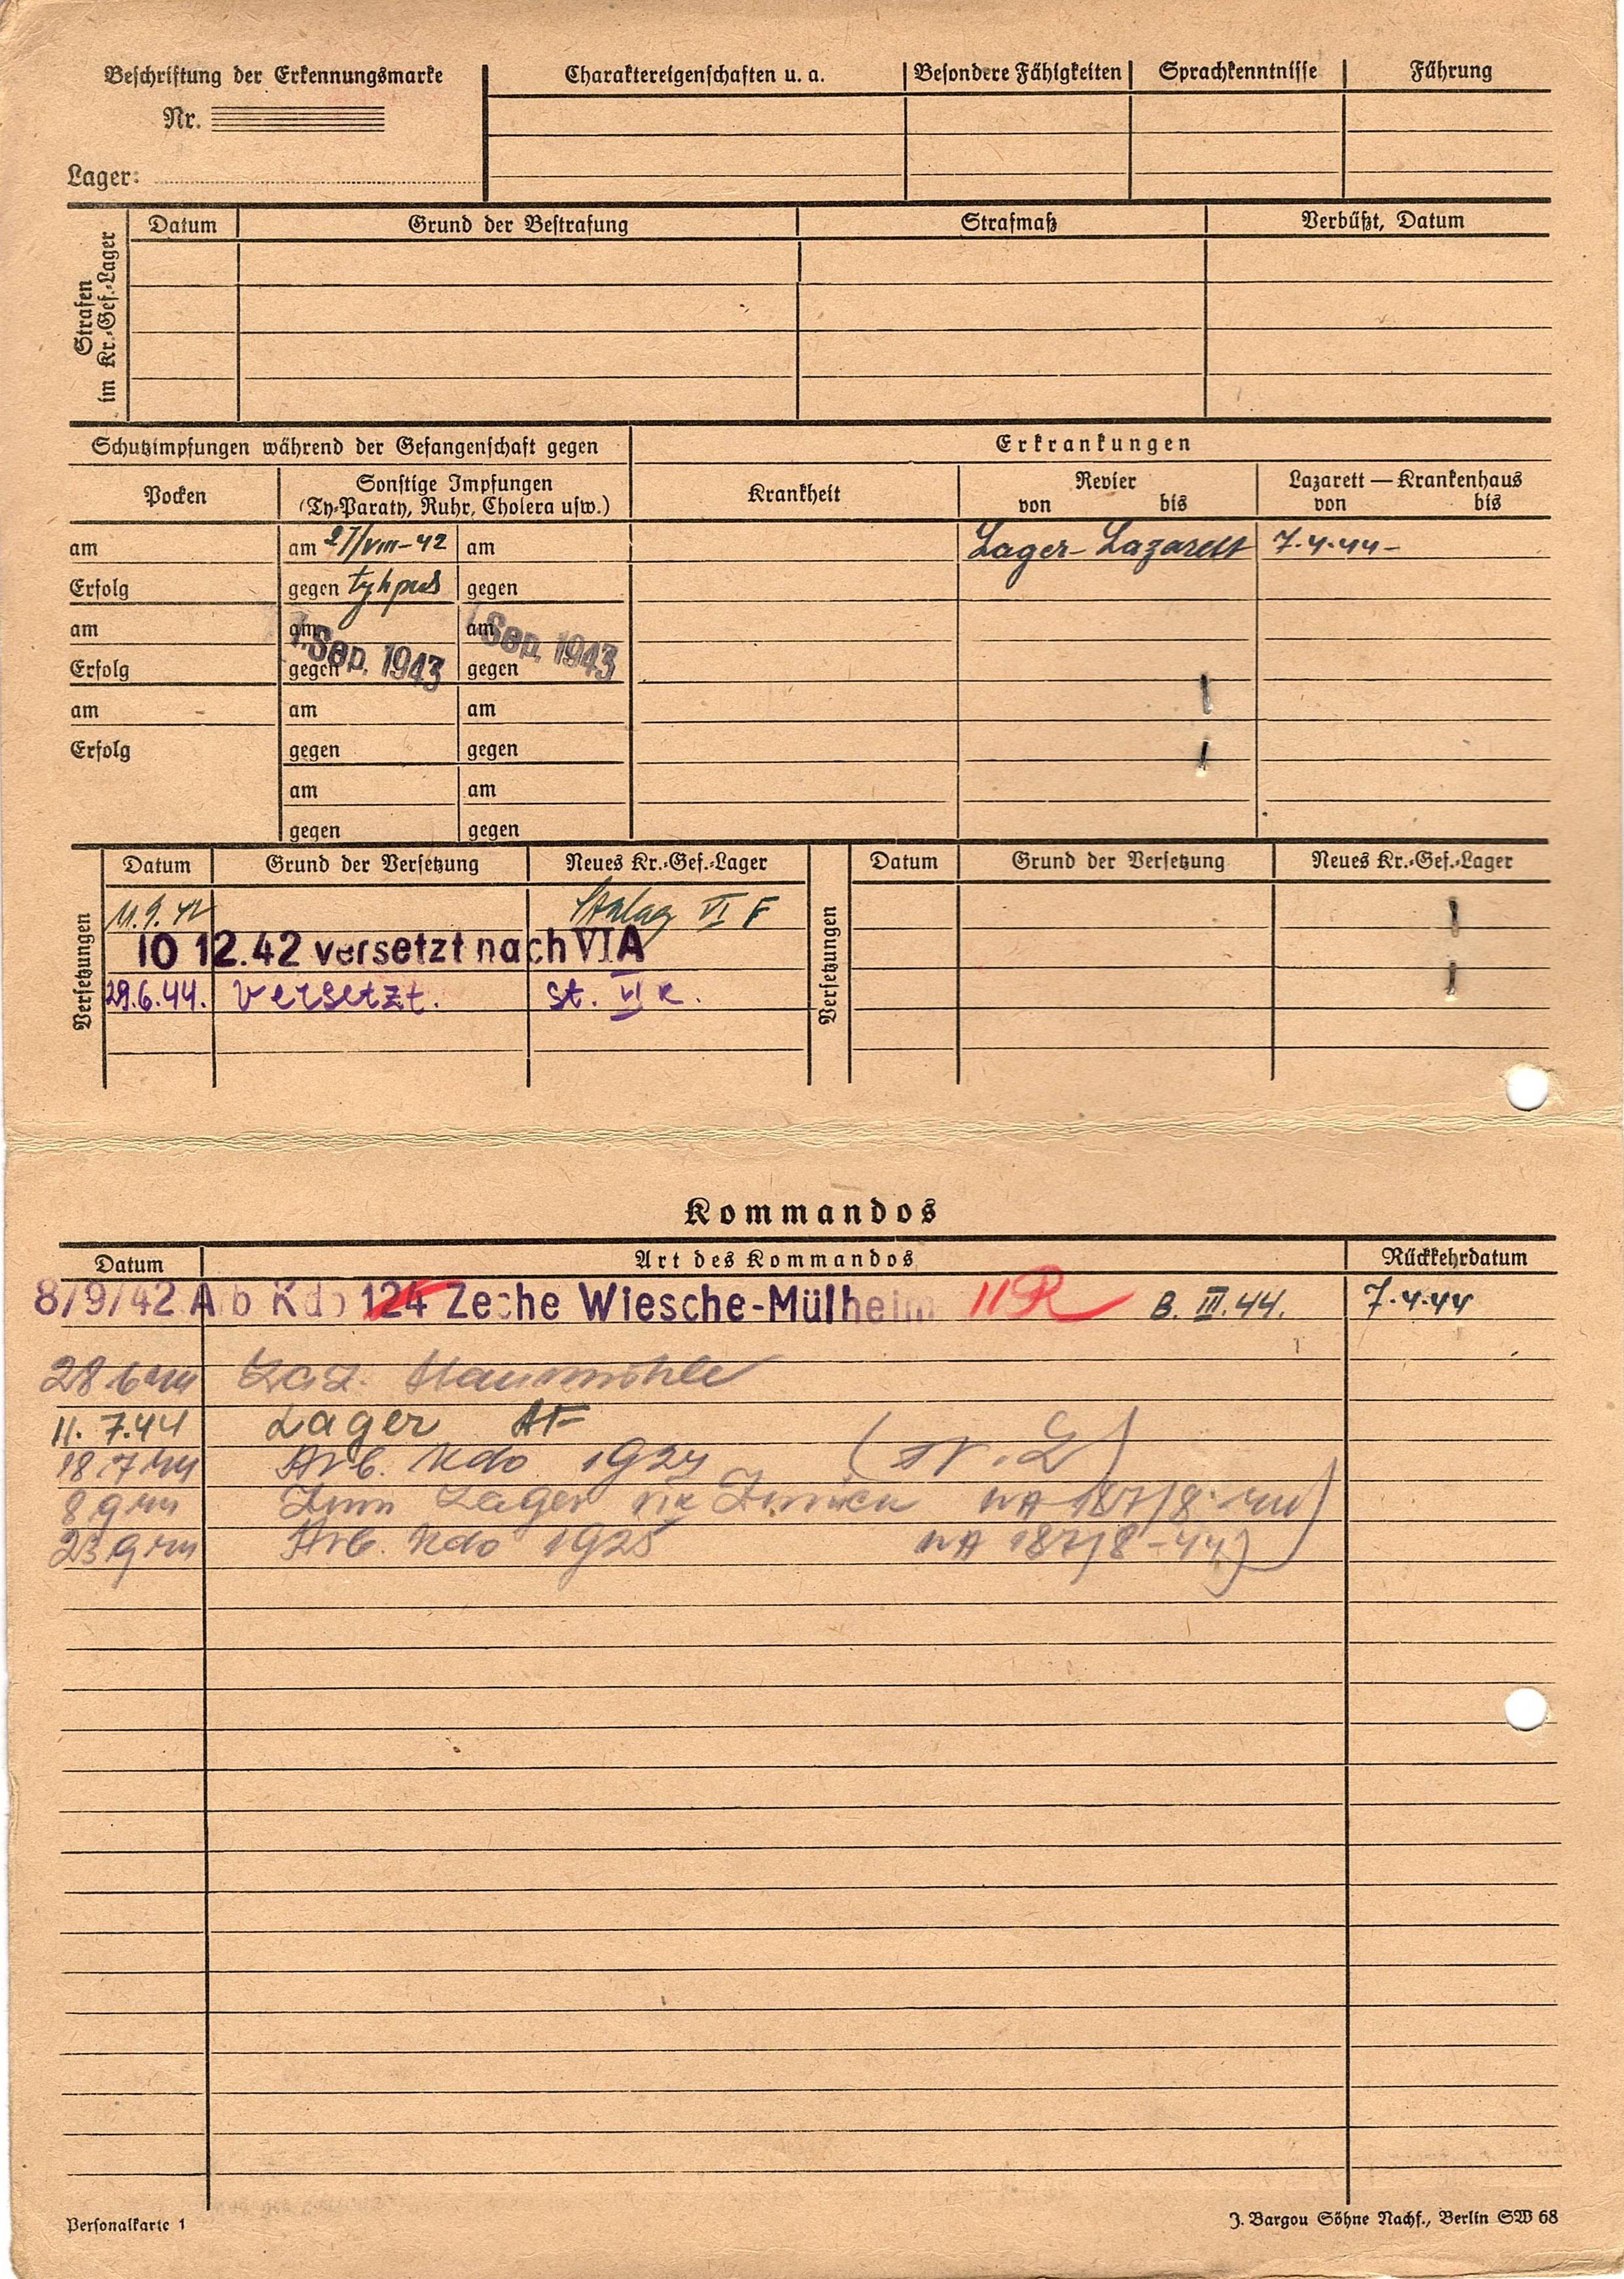 Beschriftung der Erkennungsmarke
Nr.
Lager:
Charaktereigenschaften u. a. Besondere Fähigkeiten Sprachkenntnisse Führung
Strafen im Kr.-Gef.-Lager
Datum Grund der Bestrafung Strafmaß Verbüßt, Datum
Schutzimpfungen während der Gefangenschaft gegen Erkrankungen
Pocken Sonstige Impfungen Krankheit Revier Lazarett — Krankenhaus
(Ty-Paraty, Ruhr, Cholera usw.) von bis von bis
am am 27/VIII-42 am Lager-Lazarett 7.4.44-
Erfolg gegen tyhpus gegen
am am am
1. Sep. 1943 1. Sep. 1943
Erfolg gegen gegen
am am am
Erfolg gegen gegen
am am
gegen gegen
Versetzungen Datum Grund der Versetzung Neues Kr.-Gef.-Lager Versetzungen Datum Grund der Versetzung Neues Kr.-Gef.-Lager
11.9.42 Stalag VI F
10 12.42 versetzt nach VI A
29.6.44. versetzt. St. VI K.
Kommandos
Datum Art des Kommandos Rückkehrdatum
8/9/42 Arb Kdo 124 Zeche Wiesche-Mülheim 11R B. III. 44. 7.4.44
28 6 44 Laz. Staumühle
11. 7.44 Lager AF
18 7 44 Arb. Kdo 1924
8 9 44 Zum Lager zurück NA 187/8 44)
23 9 44 Arb. Kdo 1925 NA 187/8-44)
Personalkarte 1 J. Bargou Söhne Nachf., Berlin SW 68